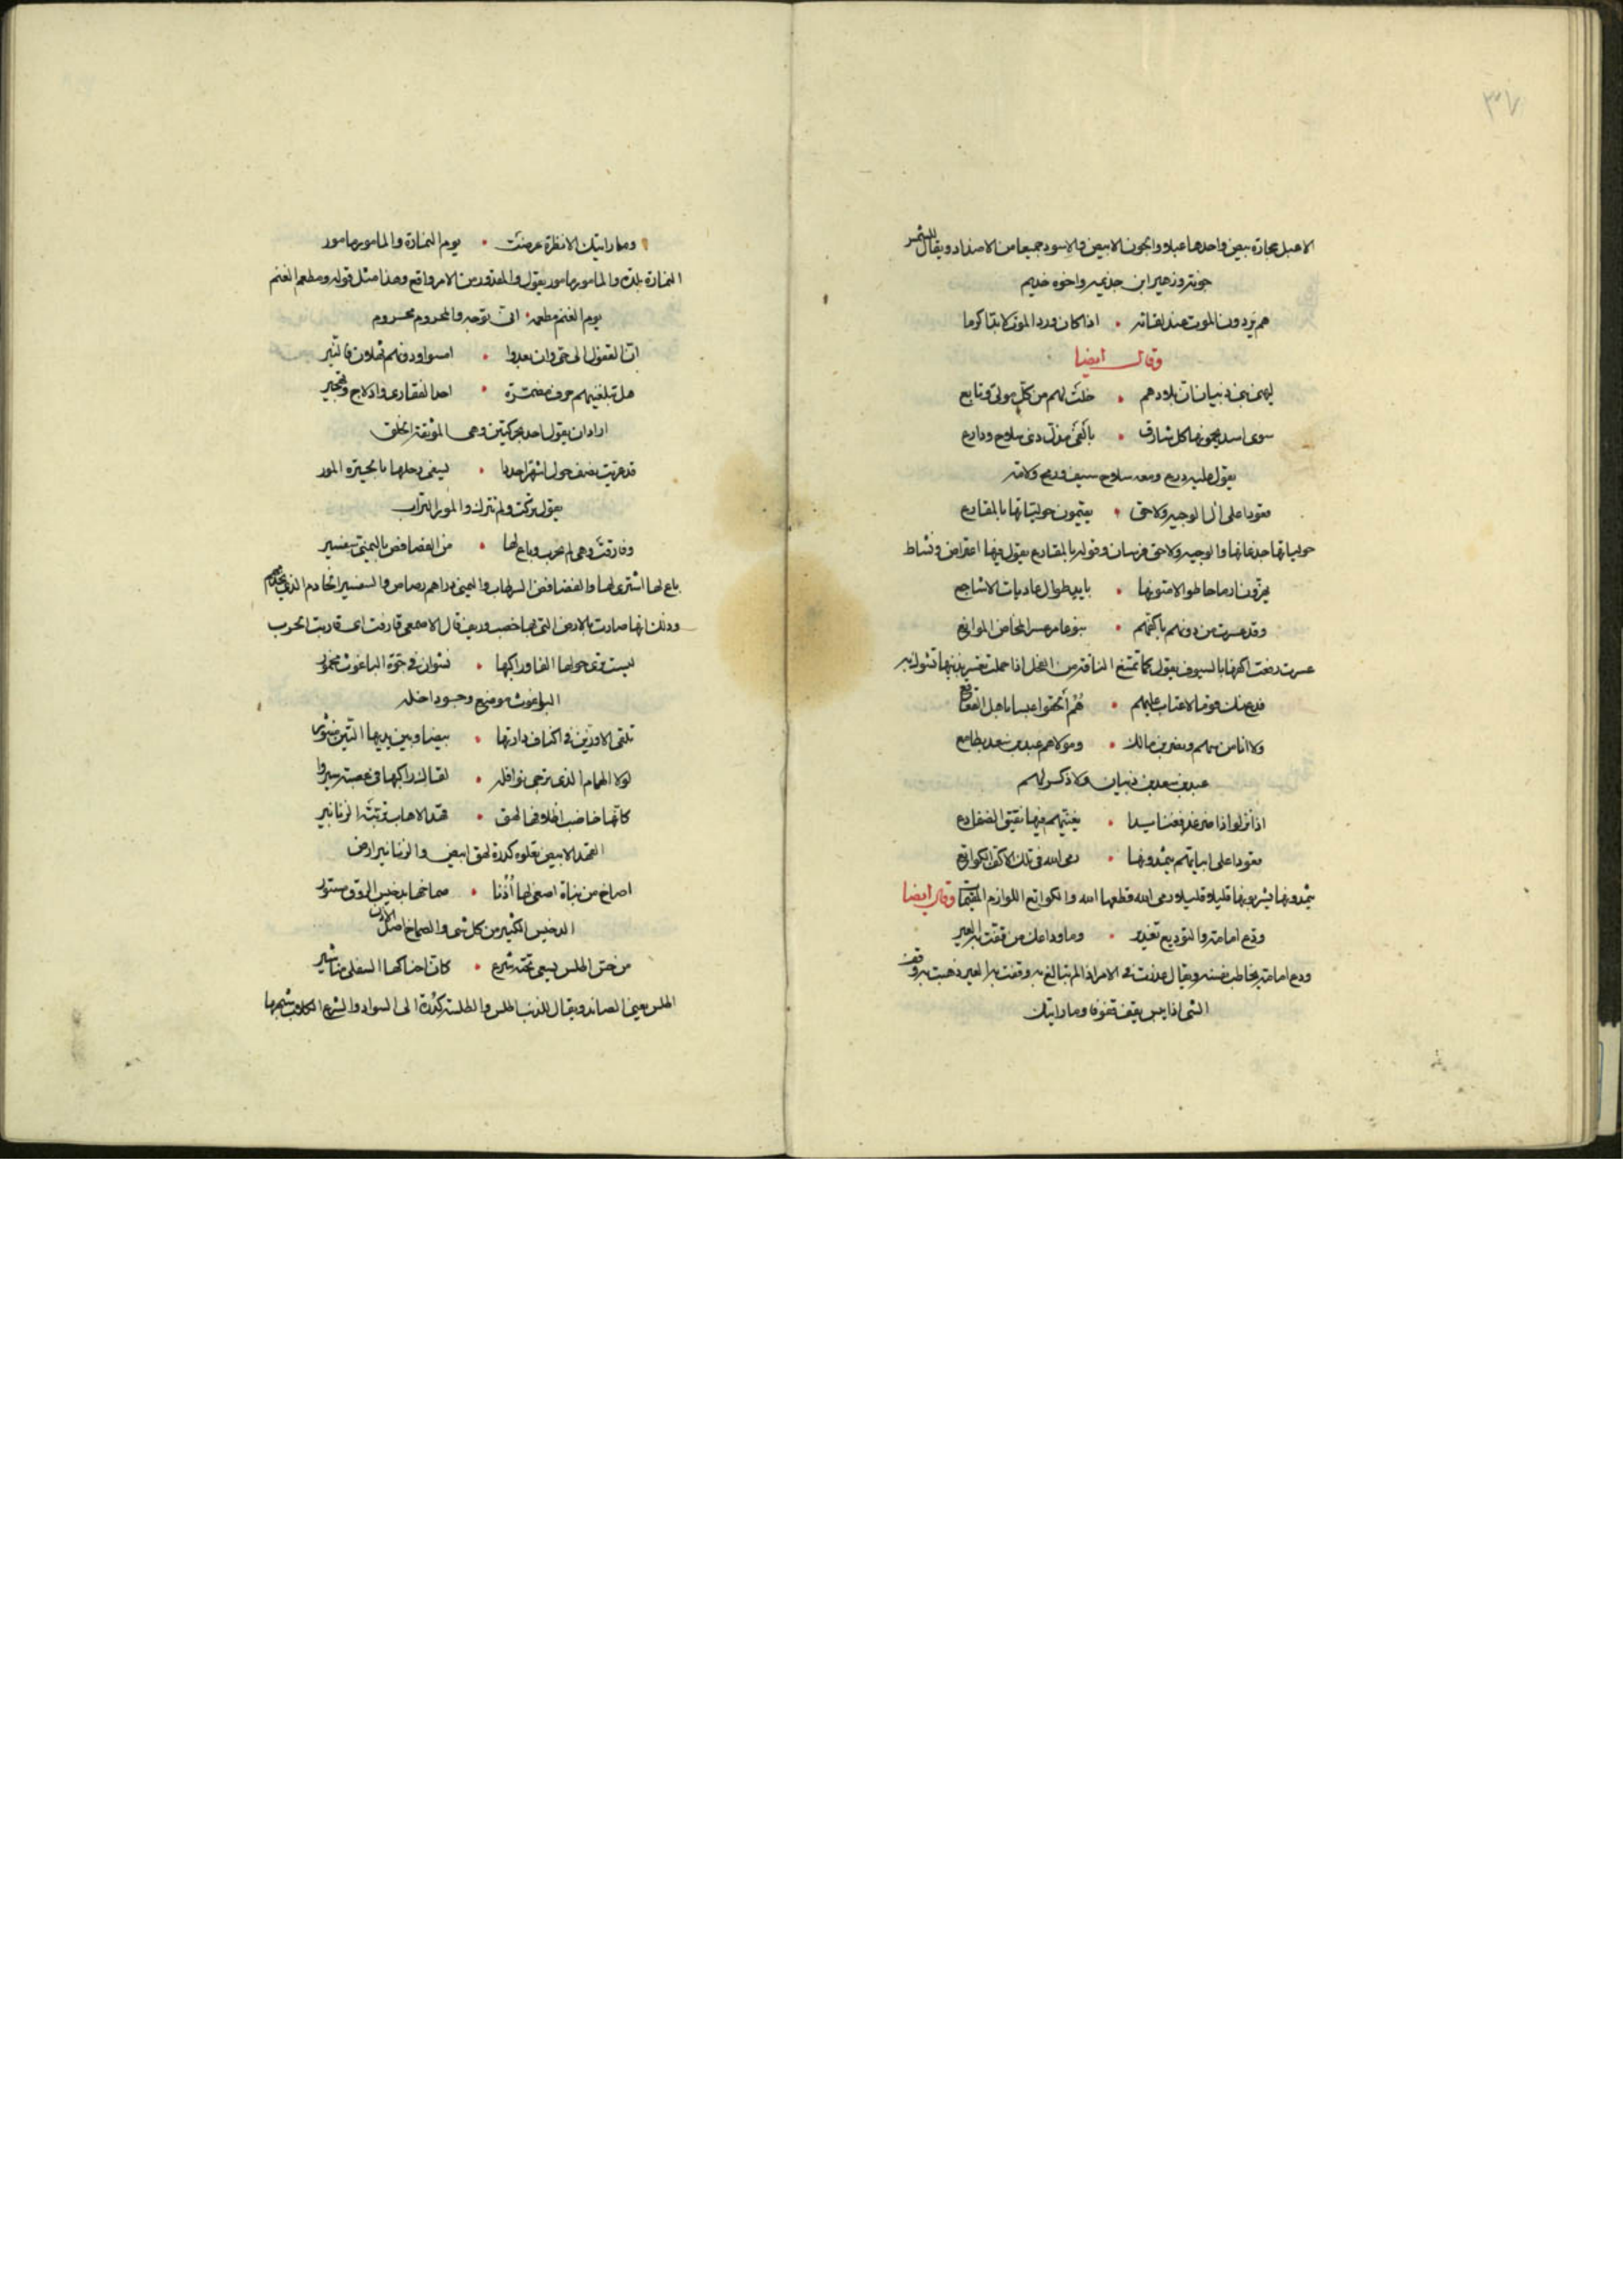 ٣٧
الاعبل حجارة بيض واحدها عبلا والجون الابيض والاسود جميعا من الاضداد ويقال للشمس
جونة وزهير ابن جذيمه واخوه خديم
هم يردون الموت عند لقائه • اذا كان ورد الموت لا بد اكرما
وقال ايضا
ليهن بنى ذبيان ان بلادهم • خلت لهم من كل مولى وتابع
سوى اسد يحمونها كل شارق • بالفى مذل ذى سلاح ودارع
يقول عليه درع ومعه سلاح سيف ورمح ولامة
قعودا على ال الوجيه ولاحق • يقيمون حولياتها بالمقارع
حولياتها جذعانها والوجيه ولاحق فرسان وقوله بالمقارع يقول فيها اعتراض ونشاط
يهزون ارماحا طوالا متونها • بايد طوال عاريات الاشاجع
وقد عسرت من دونهم باكفهم • بنو عامر عسر المخاض الموانع
عسرت رفعت اكفها بالسيوف يقول كما تمتنع الناقة من الفحل اذا حملت تضرب بذنبها تشول به
فدع عنك قوما لا عتاب عليهم • هم الحقوا عبسا باهل القعاقع
ولا انا من سهم ونصر بن مالك • ومولاهم عبد بن سعد بطامع
عبد بن سعد بن ذبيان ولا ذكر لهم
اذا نزلوا ذا ضرغد فعتائدا • يغنيهم فيها نقيق الضفادع
قعودا على ابياتهم يثمدونها • رمى الله فى تلك الاكف الكوانع
يثمدونها يشربونها قليلا قليلا ورمى الله قطعها الله والكوانع اللوازم وقال ايضا
ودع امامة والتوديع تعذير • وما وداعك من قفت به العير
ودع امامة يخاطب نفسه ويقال عذرت فى الامر اذا لم تبالغ به وقفت به العير ذهبت به
الشى اذا يبس يقف قفوفا وما رايتك
وما رايتك الا نظرة عرضت • يوم النمارة والمامور مامور
النمارة بلدة والمامور مامور يقول والمقدور من الامر واقع وهذا مثل قوله ومطعم الغنم
يوم الغنم مطعمه • انى توجه والمحروم محروم
ان القفول الى حى وان بعدوا • امسوا ودونهم ثهلان فالنير
هل تبلغنيهم حرف مصرمة • اجد الفقار وادلاج وتهجير
اراد ان يقول احد بحركتين وهى الموثقة الخلق
قد عريت نصف حول اشهرا جددا • يسفى رحلها بالحيرة المور
يقول بركت ولم تترك والمور التراب
وقارفت وهى لم تجرب وباع لها • من الفصافص بالنمى سفسير
باع لها اشترى لها والفصافص الرطاب والنمى دراهم رصاص والسفسير الخادم الذى يخدم
وذلك انها صارت بالارض التى بها خصب وريف قال الاصمعى قارفت اى قاربت الجرب
ليست ترى حولها الفا وراكبها • نشوان فى جوة الباغوث مخمور
الباغوث موضع وجو داخله
تلقى الاوزين فى اكناف دارتها • بيضا وبين يديها التبن منثور
لولا الهمام الذى ترجى نوافله • لقال راكبها فى عصبة سيروا
كانها خاضب اظلافه لهق • قهد الاهاب تربته الزنانير
القهد الابيض تعلوه كدرة لهق ابيض والزنانير ارض
اصاخ من نباة اصغى لها اذنا • صماخها بدخيس الروق مستور
الدخيس الكثير من كل شى والصماخ اصل الاذن
من حس اطلس يسعى تحته شرع • كان احناكها السفلى مناشير
اطلس يعنى الصائد ويقال للذئب اطلس والطلسة كدرة الى السواد والشرع الكلاب شبهها